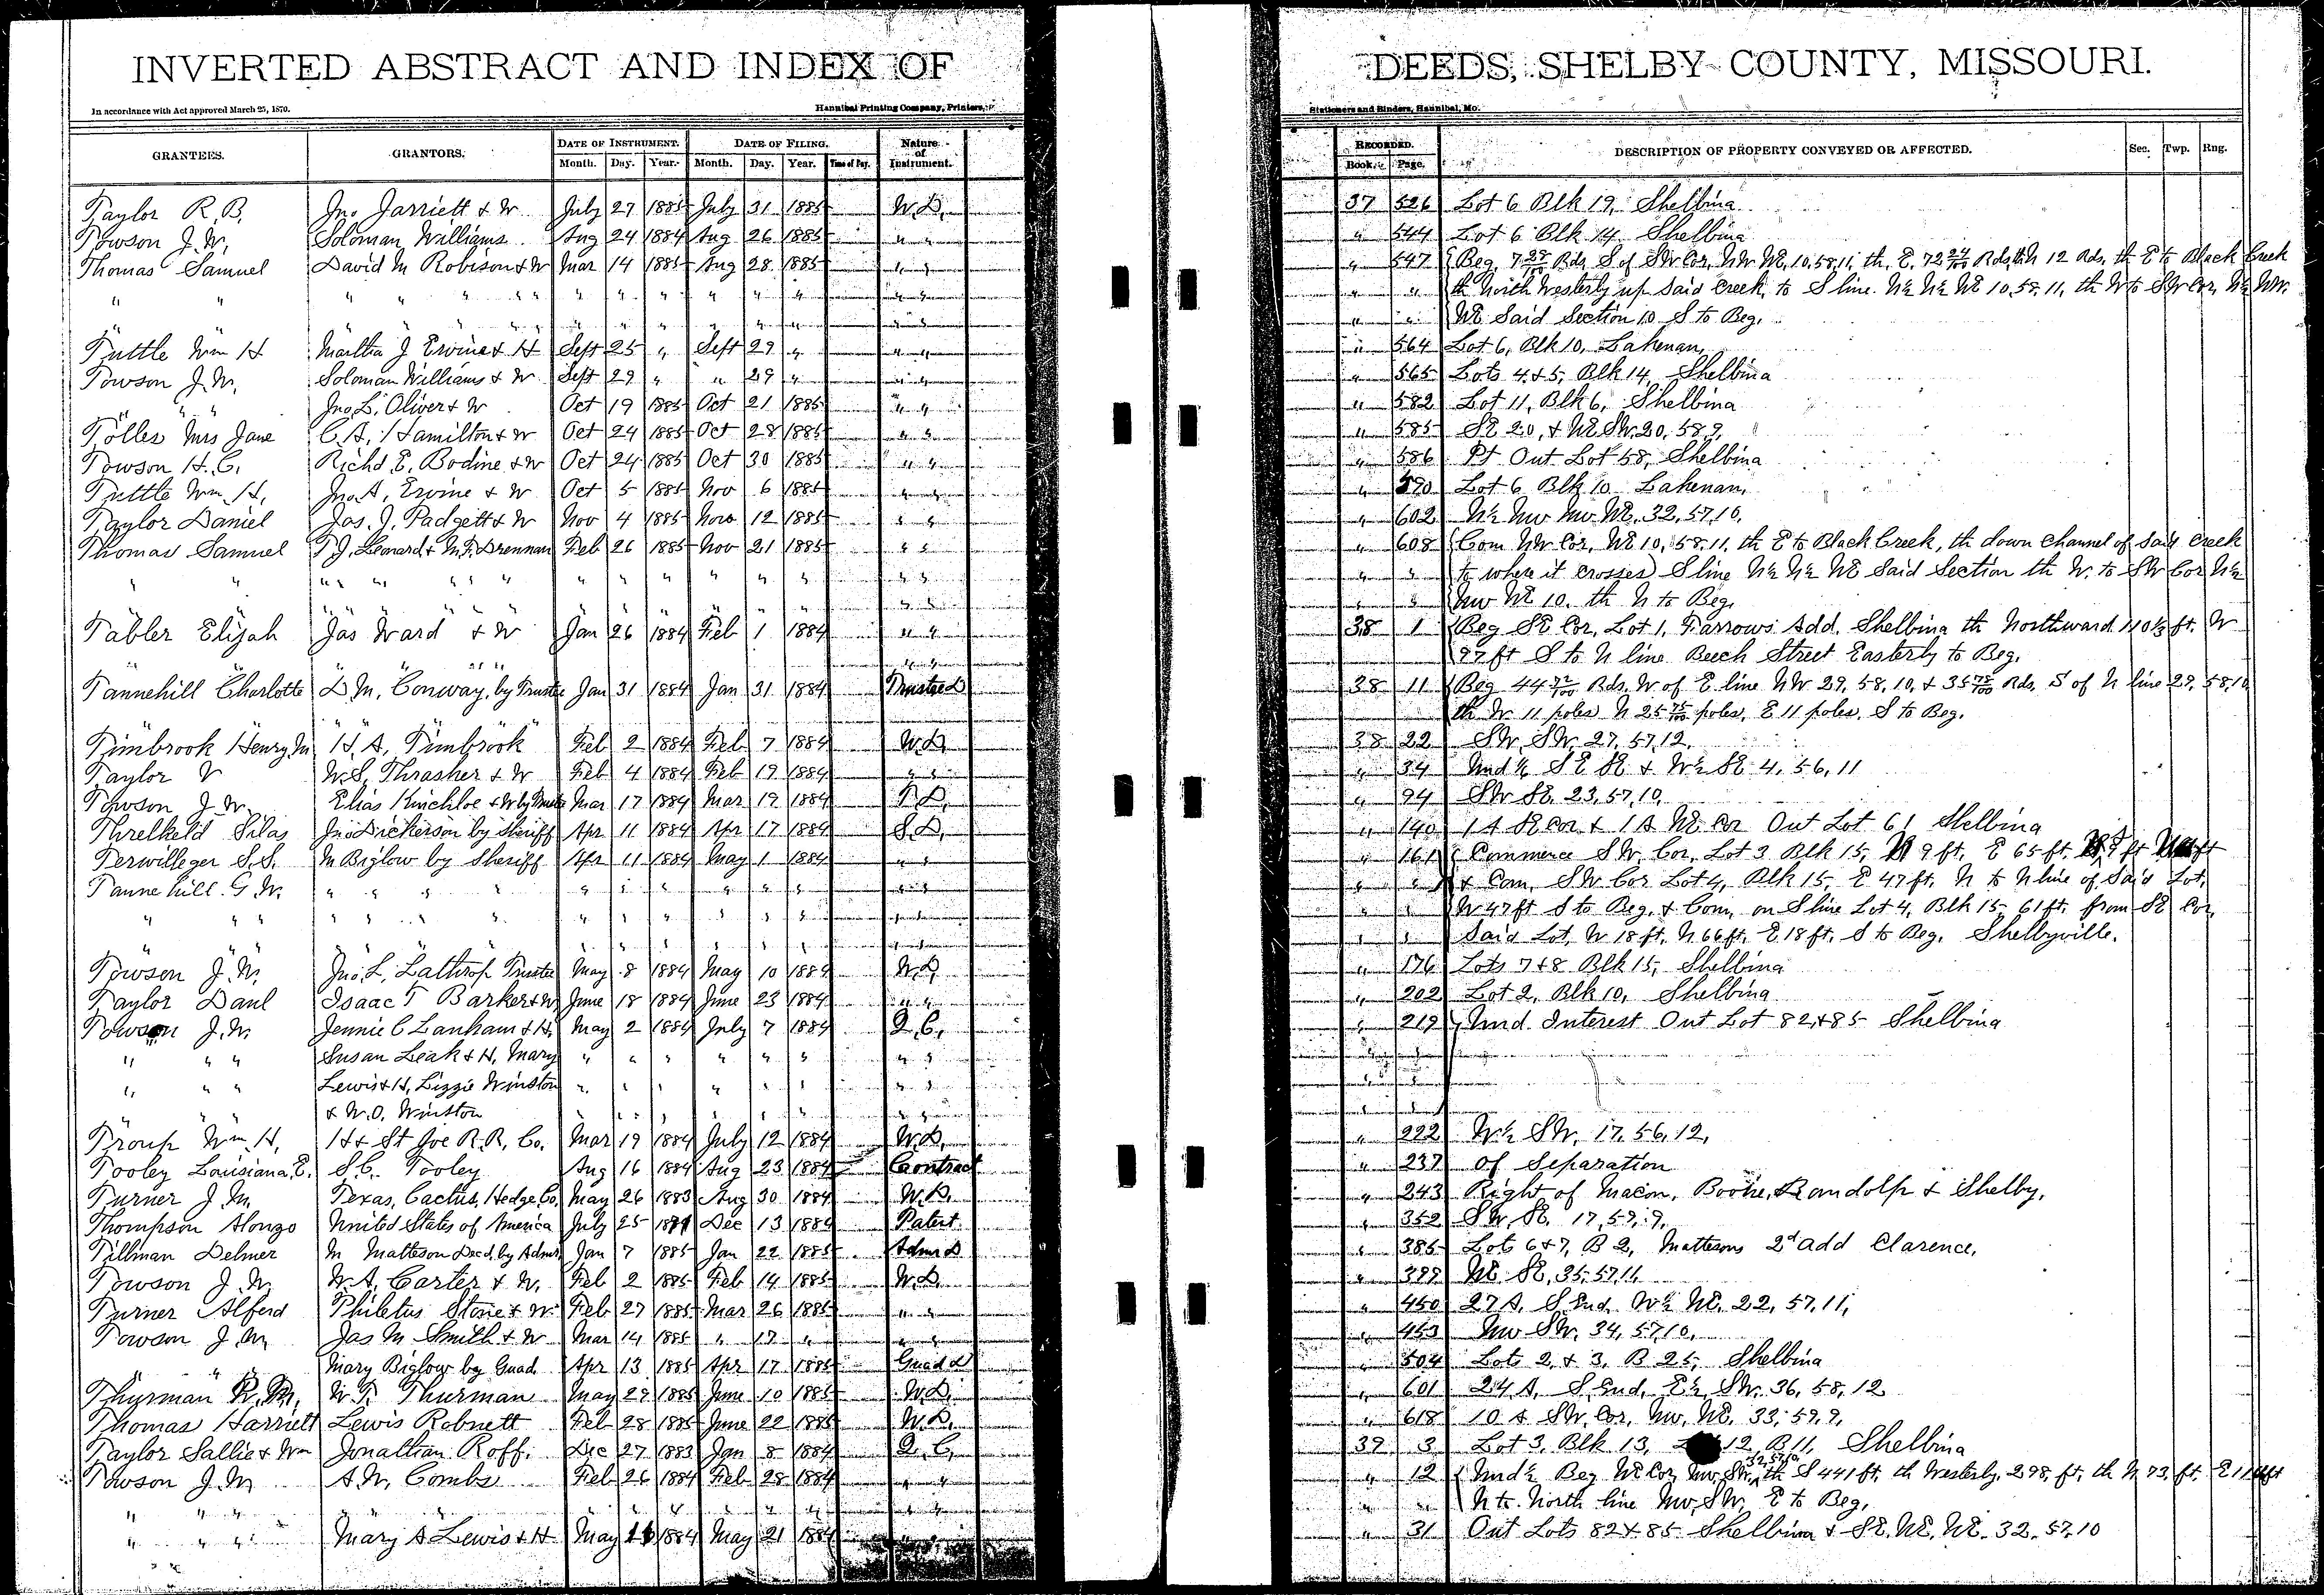 INVERTED ABSTRACT AND INDEX OF DEEDS, SHELBY COUNTY, MISSOURI.
In accordance with Act approved March 25, 1870. Hannibal Printing Company, Printers, Stationers and Binders, Hannibal, Mo.
GRANTEES. GRANTORS. DATE OF INSTRUMENT. DATE OF FILING. Nature of Instrument. RECORDED. DESCRIPTION OF PROPERTY CONVEYED OR AFFECTED. Sec. Twp. Rng.
Month. Day. Year. Month. Day. Year. Time of Day. Book. Page.
Taylor R. B. Jno Jarriett & W July 27 1885 July 31 1885 W. D. 37 526 Lot 6 Blk 19, Shelbina
Towson J. W. Soloman Williams Aug 24 1884 Aug 26 1885 " " " 544 Lot 6 Blk 14 Shelbina
Thomas Samuel David M Robison & W Mar 14 1885 Aug 28 1885 " " " 547 Beg. 7 Rds S of SW Cor, NW NE, 10, 58, 11, th, E, 72 Rds, th N 12 Rds, th E to Black Creek
" " " " " " " " " " " " " " " " " th North Westerly up Said Creek, to S line N½ N½ NE 10, 58, 11, th W to SW Cor, N½ NW.
" " " " " " " " " " " " NE Said Section 10 S to Beg.
Tuttle Wm H Martha J Ervine & H Sept 25 " Sept 29 " " " " 564 Lot 6, Blk 10, Lakenan,
Towson J. W. Soloman Williams & W Sept 29 " " 29 " " " " 565 Lots 4 & 5, Blk 14, Shelbina
" " " Jno L. Oliver & W Oct 19 1885 Oct 21 1885 " " " 582 Lot 11, Blk 6, Shelbina
Tolles Mrs Jane C. A. Hamilton & W Oct 24 1885 Oct 28 1885 " " " 585 SE 20, & NE SW. 20, 58, 9,
Towson H. C. Richd E. Bodine & W Oct 24 1885 Oct 30 1885 " " " 586 Pt Out Lot 58, Shelbina
Tuttle Wm. H, Jno. A. Ervine & W Oct 5 1885 Nov 6 1885 " " " 590 Lot 6 Blk 10 Lakenan,
Taylor Daniel Jas. J. Padgett & W Nov 4 1885 Nov 12 1885 " " " 602 N½ NW NW NE, 32, 57, 10,
Thomas Samuel T J. Leonard & M. F. Drennan Feb 26 1885 Nov 21 1885 " " " 608 Com NW Cor, NE 10, 58, 11, th E to Black Creek, th down Channel of Said Creek
" " " " " " " " " " " " " " " " " to where it crosses S line N½ N½ NE Said Section th W. to SW Cor N½
" " " " " " " " NW NE 10. th N to Beg.
Tabler Elijah Jas Ward & W Jan 26 1884 Feb 1 1884 " " 38 1 Beg SE Cor, Lot 1, Farrows Add. Shelbina th Northward 110⅓ ft. W
97 ft S to N line Beech Street Easterly to Beg.
Tannehill Charlotte D. M. Conway, by Trustee Jan 31 1884 Jan 31 1884 Trustee D 38 11 Beg 44 Rds. W of E line NW 29, 58, 10, & 35 Rds, S of N line 29, 58, 10
th W 11 poles N 25 poles, E 11 poles, S to Beg.
Timbrook Henry M H. A. Timbrook Feb 2 1884 Feb 7 1884 W. D. 38 22 SW, SW, 27, 57, 12,
Taylor V W. S. Thrasher & W Feb 4 1884 Feb 19 1884 " " " 34 Und ½ SE SE & W½ SE 4, 56, 11
Towson J. W. Elias Kinchloe & W by Trustee Mar 17 1884 Mar 19 1884 T. D. " 94 SW SE. 23, 57, 10,
Threlkeld Silas Jno Dickerson by Sheriff Apr 11 1884 Apr 17 1884 S. D. " 140 1 A SE Cor & 1 A NE Cor Out Lot 61 Shelbina
Terwilleger S. S. M Biglow by Sheriff Apr 11 1884 May 1 1884 " " " 161 Commence SW. Cor, Lot 3 Blk 15, N 9 ft, E 65 ft,
Tannehill G. W. " " " " " " " " " " " " " " & Com, SW Cor Lot 4, Blk 15, E 47 ft, N to N line of Said Lot,
" " " " " " " " " " " " " " " " " W 47 ft S to Beg. & Com, on S line Lot 4, Blk 15, 61 ft. from SE Cor,
" " " " " " " " " " " " Said Lot, W 18 ft, N 66 ft, E 18 ft, S to Beg. Shelbyville.
Towson J. W. Jno. L. Lathrop Trustee May 8 1884 May 10 1884 W. D. " 176 Lots 7 & 8 Blk 15, Shelbina
Taylor Danl Isaac T Barker & W June 18 1884 June 23 1884 " " " 202 Lot 2, Blk 10, Shelbina
Towson J. W. Jennie C Lanham & H, May 2 1884 July 7 1884 Q. C. " 219 Und. Interest Out Lot 82 & 85 Shelbina
" " " Susan Leak & H, Mary " " " " " " " " " "
" " " Lewis & H, Lizzie Winston " " " " " " " " " "
" " & W. O. Winston " " " " " " " "
Troup Wm. H, H & St Joe R. R. Co. Mar 19 1884 July 12 1884 W. D. " 222 W½ SW, 17, 56, 12,
Tooley Louisiana E. S. C. Tooley Aug 16 1884 Aug 23 1884 Contract " 237 of Separation
Turner J. M. Texas, Cactus, Hedge Co, May 26 1883 Aug 30 1884 W. D. " 243 Right of Macon, Boone, Randolph & Shelby,
Thompson Alonzo United States of America July 25 1871 Dec 13 1884 Patent " 352 SW, SE. 17, 59, 9,
Tillman Delmer M Matteson Decd, by Admr, Jan 7 1885 Jan 22 1885 Admr D " 385 Lots 6 & 7, B 2, Mattesons 2d Add Clarence,
Towson J. W. W. A. Carter & W, Feb 2 1885 Feb 14 1885 W. D. " 399 NE SE, 35, 57, 11
Turner Alferd Philetus Stone & W Feb 27 1885 Mar 26 1885 " " " 450 27 A, S End W½ NE, 22, 57, 11,
Towson J. W. Jas M Smith & W Mar 14 1885 " 17 " " " " 453 NW SW. 34, 57, 10,
" " Mary Biglow by Guad Apr 13 1885 Apr 17 1885 Guad D " 504 Lots 2, & 3, B 25, Shelbina
Thurman W. T. Thurman May 29 1885 June 10 1885 W. D. " 601 24 A, S, End, E½, SW. 36, 58, 12
Thomas Harriett Lewis Robnett Feb 28 1885 June 22 1885 W. D. " 618 10 A SW, Cor, NW, NE, 33, 59, 9,
Taylor Sallie & Wm Jonathan Roff. Dec 27 1883 Jan 8 1884 Q. C. 39 3 Lot 3, Blk 13, 12, B 11, Shelbina
Towson J. W. A. W. Combs Feb 26 1884 Feb 28 1884 " " " 12 Und ½ Beg NE Cor NW, SW, 32, 57, 10 th S 441 ft, th Westerly, 298, ft, th N 73 ft,
" " " " " " " " " " " " N to North line NW, SW, E to Beg,
" " " Mary A Lewis & H May 1884 May 21 1884 " " " 31 Out Lots 82 & 85 Shelbina & SE, NE, NE. 32, 57, 10